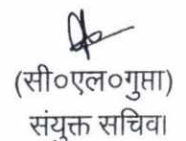 (सी०एल०गुप्ता)
संयुक्त सचिव।